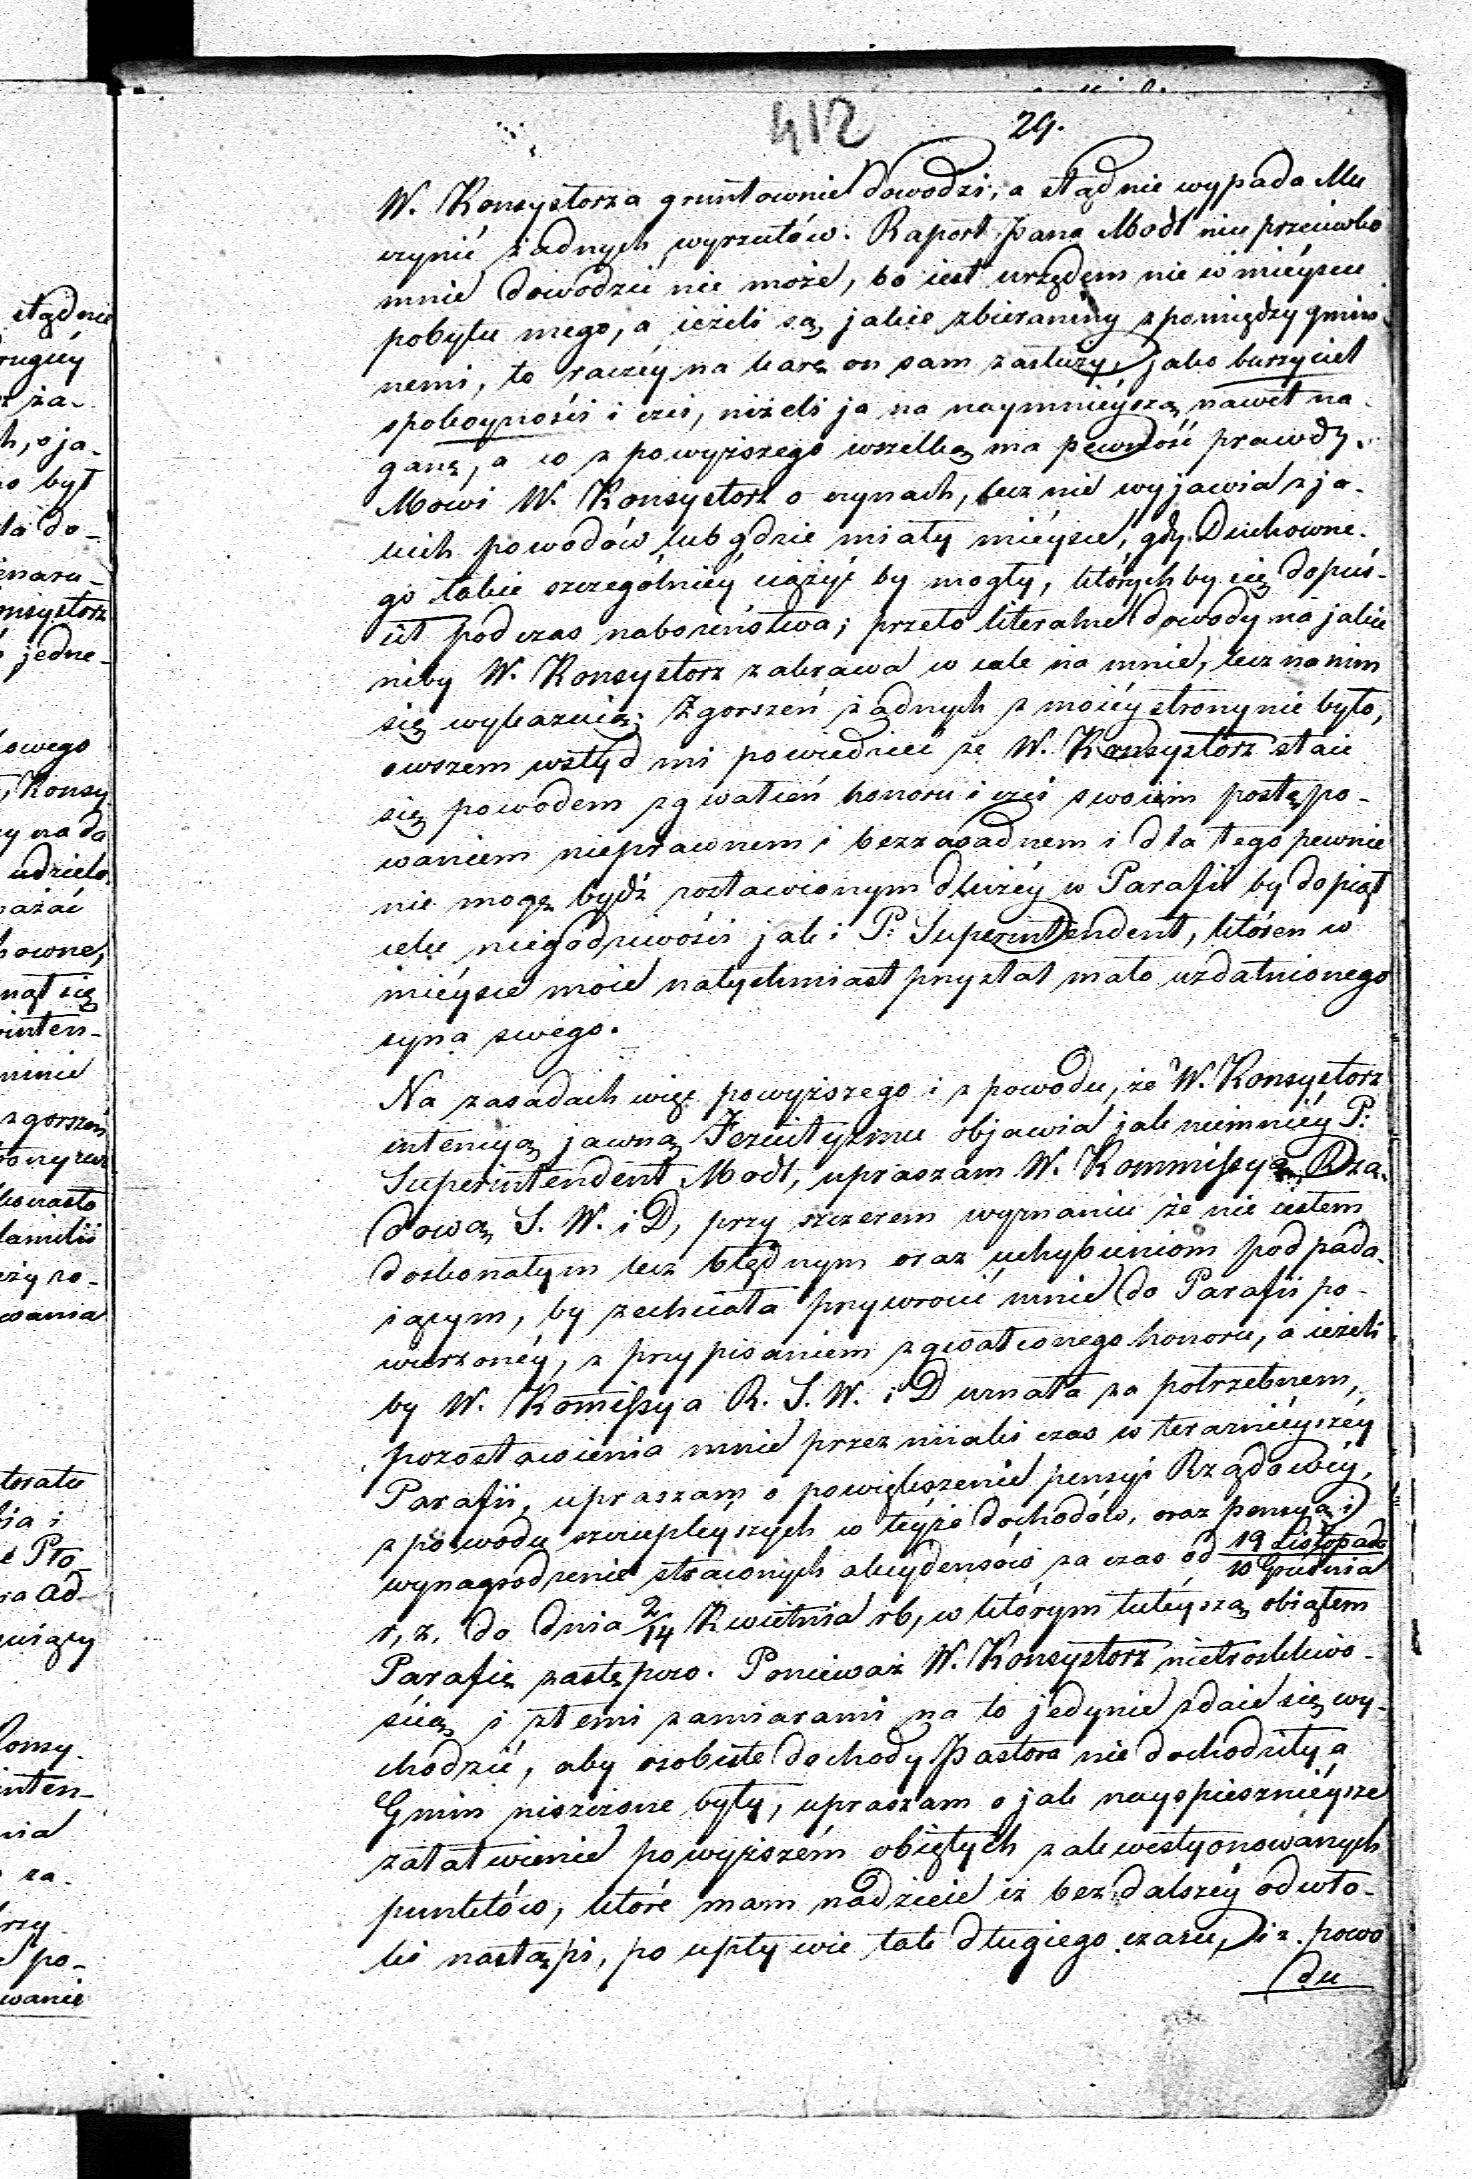 412 29.
W. Konsystorza gruntownie dowodzi, a stąd nie wypada Mu
czynić żadnych wyrzutów. Raport Pana Modl nic przeciwko
mnie dowodzić nie może, bo iest urzędem nie w mieyscu
pobytu mego, a ieżeli są jakie zbieraniny z pomiędzy gmin¬
nemi, to raczéy na karę on sam zasłuży, jako burzyciel
spokoyności i czci, niżeli ja na naymnieyszą nawet na¬
ganę, a co z powyższego wszelką ma pewność prawdy.
Mówi W. Konsystorz o czynach, lecz nie wyjawia z ja¬
kich powodów lub gdzie miały miéysce, gdy Duchowne¬
go takie szczególniéy ciążyć by mogły, których by się dopuś¬
cił podczas nabożeństwa; przeto literalne dowody na jakie
niby W. Konsystorz zakrawa w cale na mnie, lecz na nim
się wykazuią; Zgorszeń żadnych z moiéy strony nie było,
owszem wstyd mi powiedzieć że W. Konsystorz staie
się powodem zgwałceń honoru i czci swoiém postępo¬
waniem nieprawnem i bezzasadnem i dla tego pewnie
nie mogę bydź zostawionym dłużéy w Parafii by dopiął
celu niegodziwości jak i P. Superintendent, któren w
miéysce moie natychmiast przysłał mało uzdatnionego
syna swego.
Na zasadach więc powyższego i z powodu, że W. Konsystorz
intencyą jawną Jezuityzmu objawia jak niemniéy P.
Superintendent Modl, upraszam W. Kommissyą Rzą¬
dową S. W. i D, przy szczerem wyznaniu że nie iestem
doskonałym lecz błędnym oraz uchybieniom podpada¬
iącym, by zechciała przywrocić mnie do Parafii po¬
wierzonéy, z przypisaniem zgwałconego honoru, a ieżeli
by W. Komissya R. S. W. i D uznała za potrzebnem,
pozostawienia mnie przez niiaki czas w teraźniéyszéy
Parafii, upraszam o powiększenie pensyi Rządowéy,
z powodu szczupleyszych w téyże dochodów, oraz pensyą i
wynagrodzenie straconych akcydensów za czas od 19 Listopada/10 Grudnia
r, z. do dnia 2/14 Kwietnia rb, w którym tutéyszą obiąłem
Parafię zastępczo. Ponieważ W. Konsystorz nietroskliwo¬
ścią i złemi zamiarami na to jedynie zdaie się wy¬
chodzić, aby osobiste dochody Pastora nie dochodziły a
Gmin niszczone były, upraszam o jak nayspieszniéysze
załatwienie powyższém obiętych zakwestyonowanych
punktów, które mam nadzieie iż bez dalszéy odwło¬
ki nastąpi, po upływie tak długiego czasu, i z. powo
du